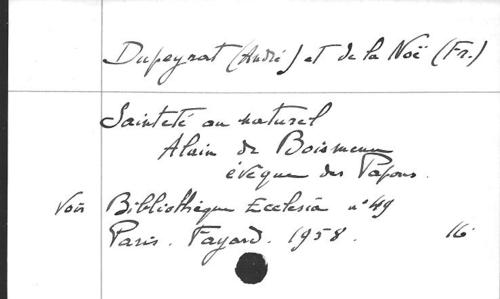 Dupeyrat (André) et de la Noë (Fr.)
Sainteté au naturel
Alain de Boismenu
évêque des Papous.
Voir Bibliothèque Ecclesia n° 49
Paris. Fayard. 1958. 16